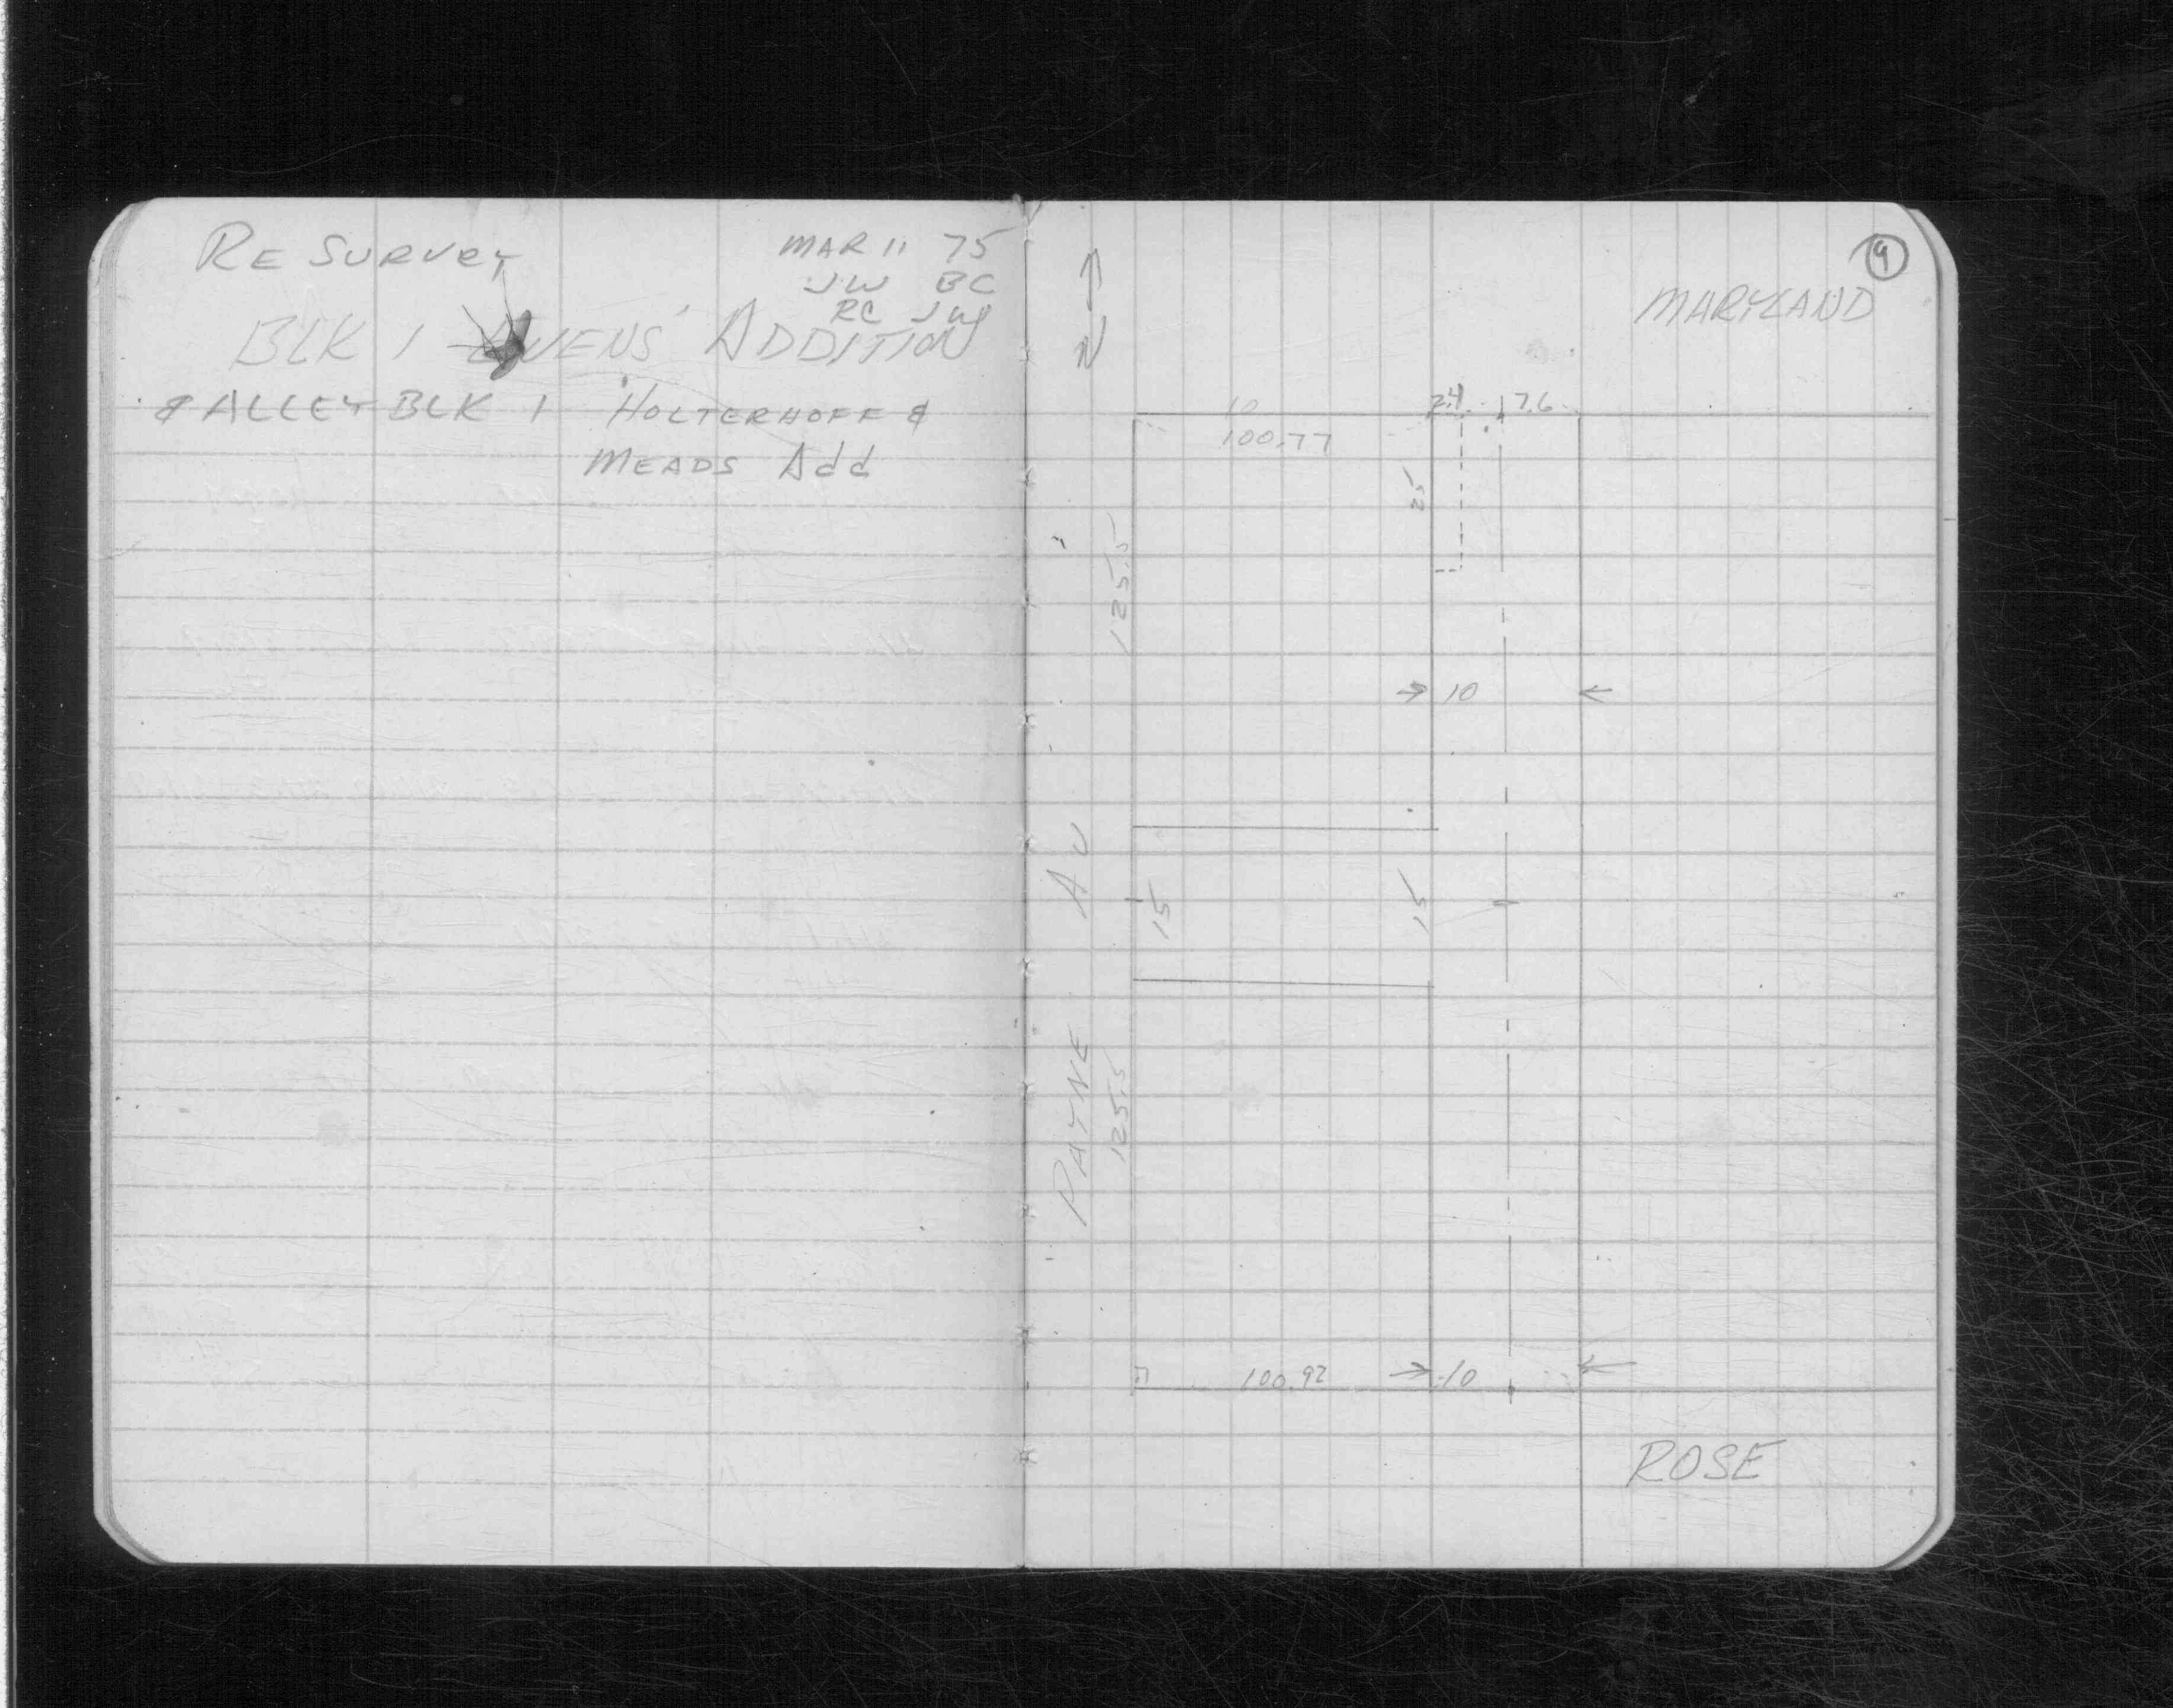 RE SURVEY
MAR 11 75
JW BC
RC JW
BLK 1 EVENS' ADDITION
& ALLEY BLK 1 HOLTERHOFF &
MEADS Add
9
N
MARYLAND
10
2.4 7.6
100.77
25
125.5
10
PAYNE AV
15
15
125.5
100.92
10
ROSE